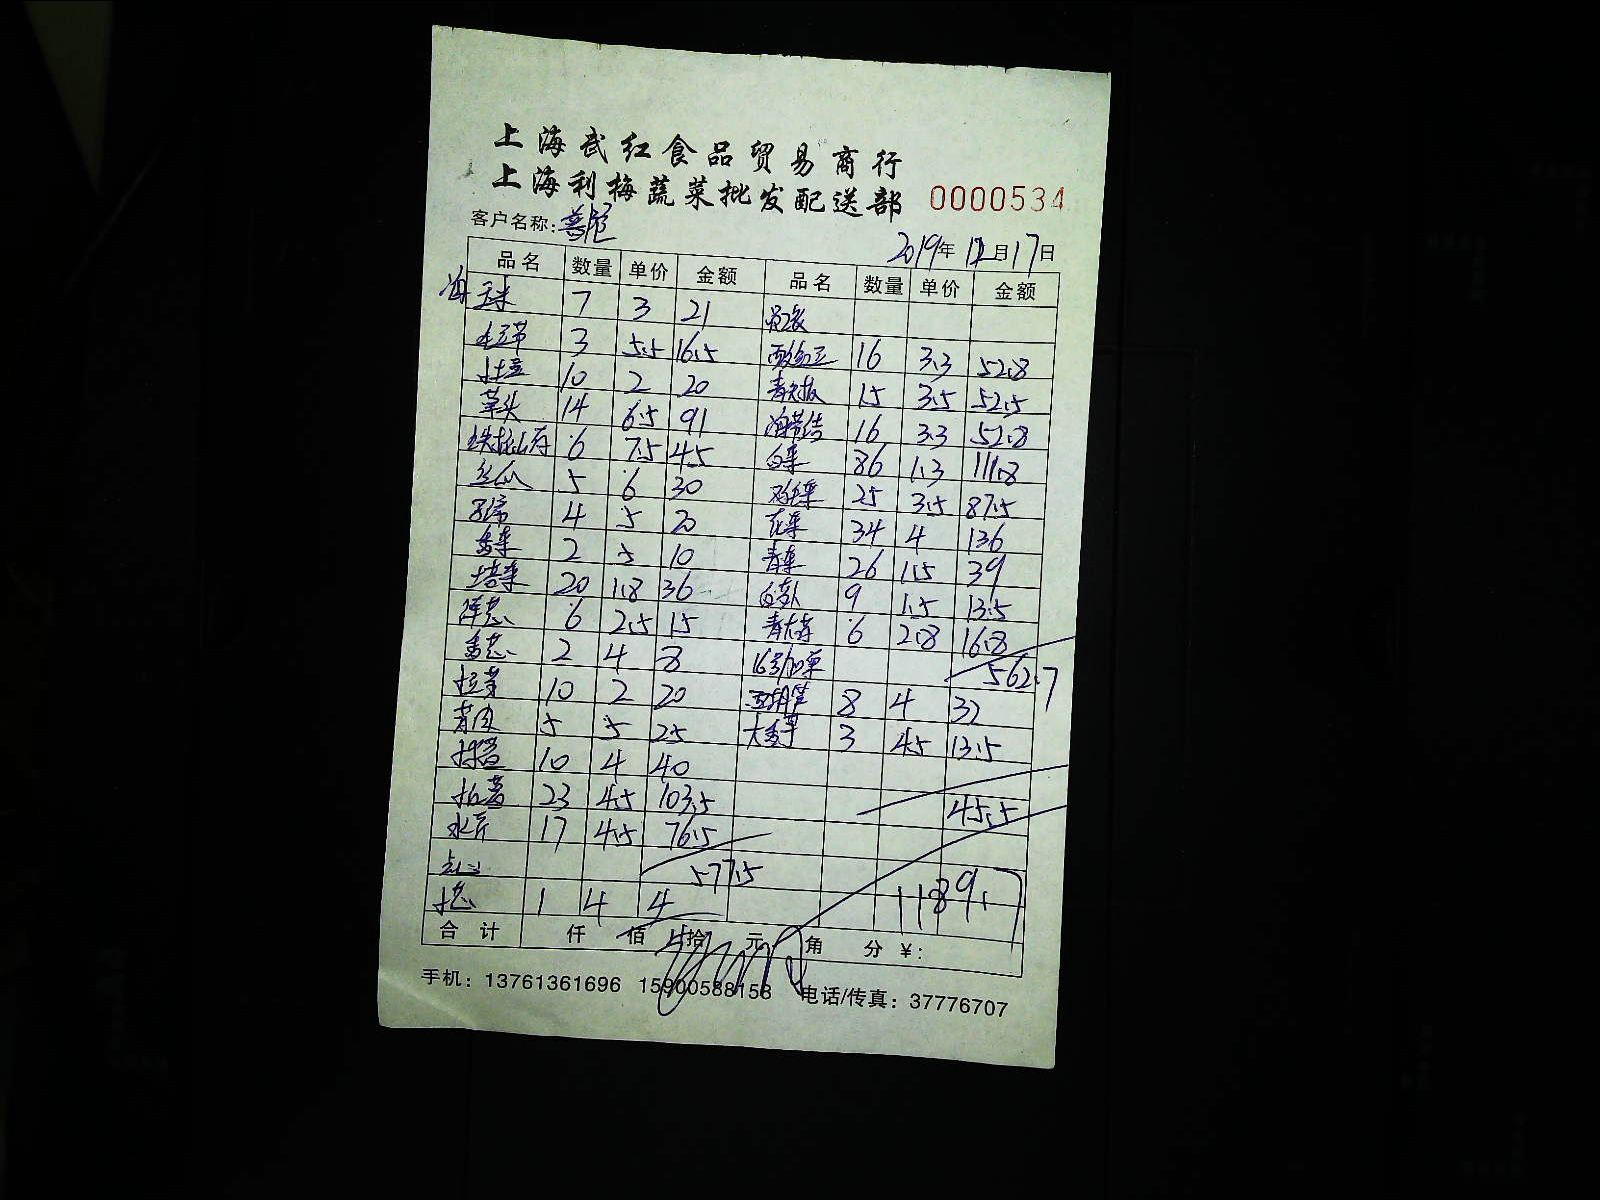 上海武红食品贸易商行
上海利梅蔬菜批发配送部 0000534
客户名称:
2019年12月17日
品名 数量 单价 金额 品名 数量 单价 金额
玉米 7 3 21
3 5.5 16.5 16 3.3 52.8
土豆 10 2 20 15 3.5 52.5
草头 14 6.5 91 海带结 16 3.3 52.8
铁棍山药 6 7.5 45 白菜 86 1.3 111.8
丝瓜 5 6 30 鸡毛菜 25 3.5 87.5
4 5 20 花菜 34 4 136
香菜 2 5 10 青菜 26 1.5 39
塔菜 20 1.8 36 白萝卜 9 1.5 13.5
洋葱 6 2.5 15 青大蒜 6 2.8 16.8
香葱 2 4 8 16号加菜 562.7
10 2 20 8 4 32
5 5 25 3 4.5 13.5
10 4 40
23 4.5 103.5 45.5
水芹 17 4.5 76.5
577.5
1 4 4 1189.7
合计 仟 佰 拾 元 角 分 ¥:
手机: 13761361696 15900588158 电话/传真: 37776707